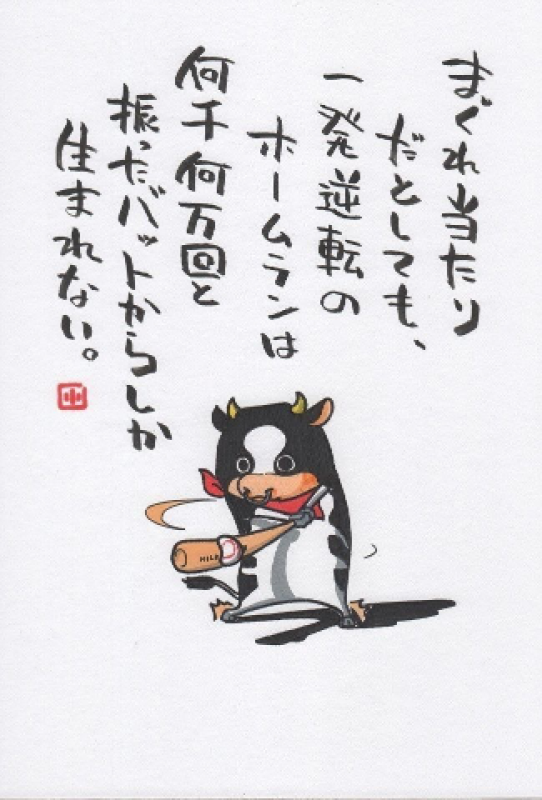 まぐれ当たり
だとしても、
一発逆転の
ホームランは
何千何万回と
振ったバットからしか
生まれない。
MILK